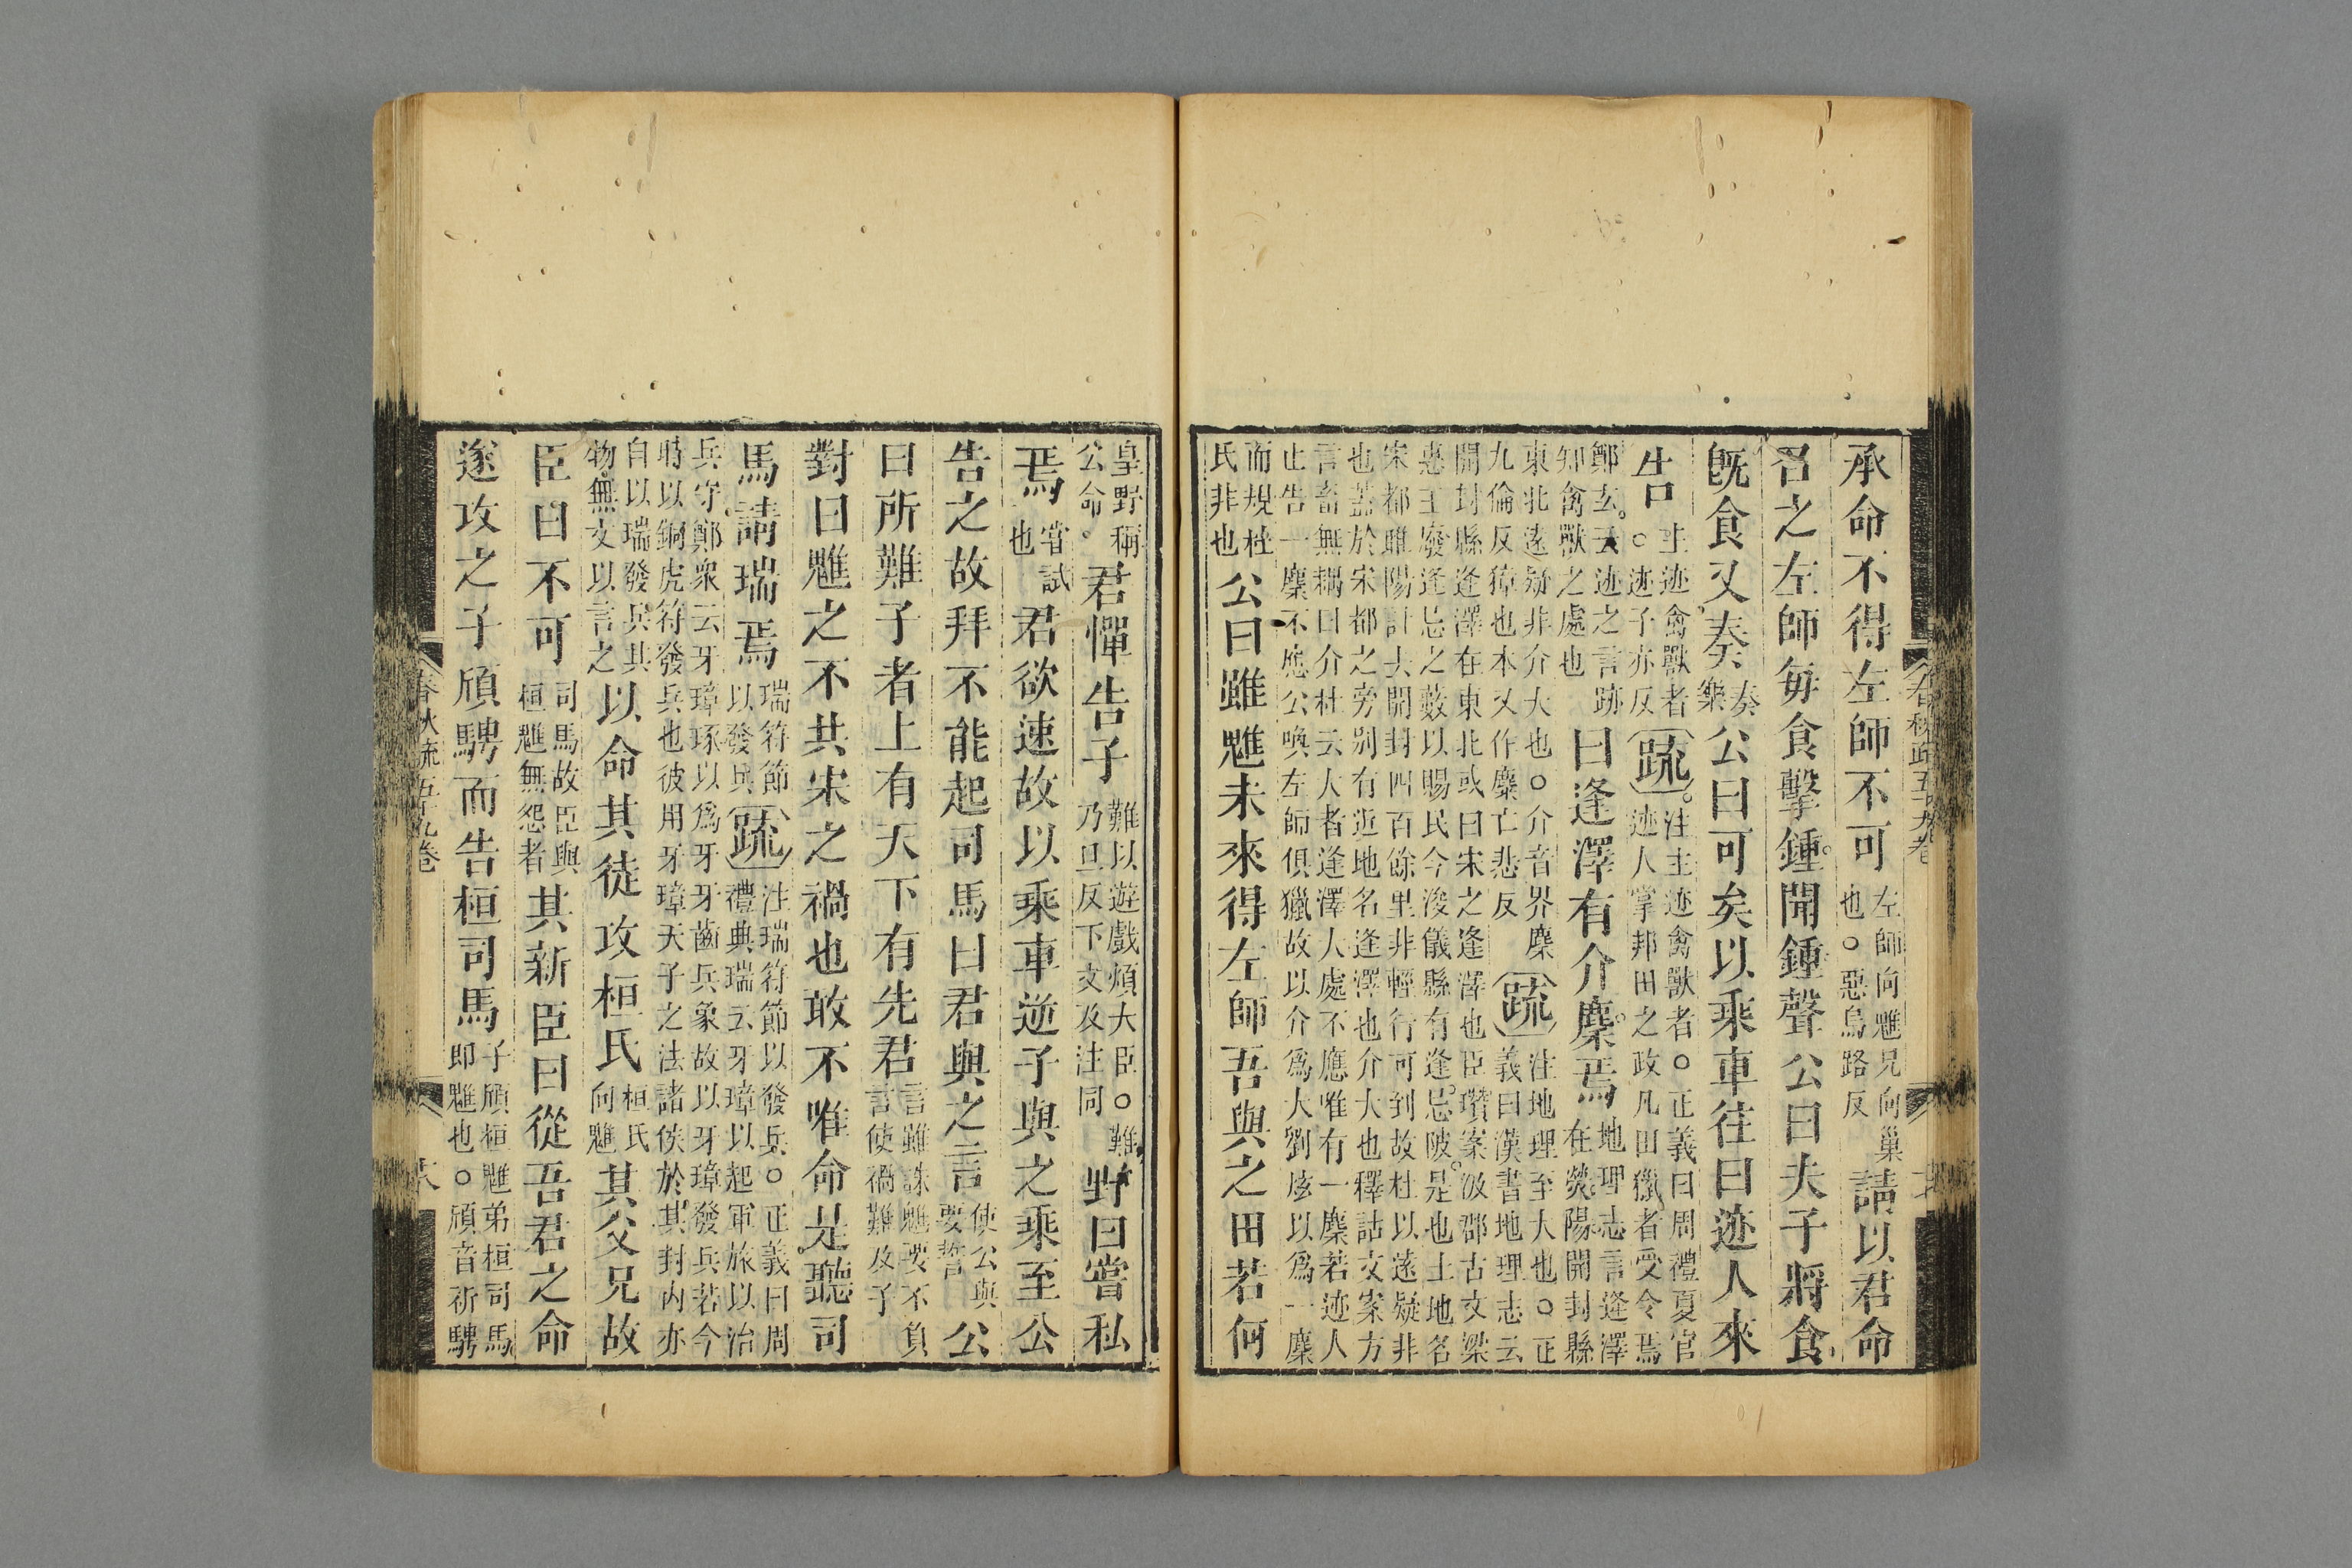 承命不得左師不可左師向魋兄向巢也○惡烏路反請以君命
召之左師每食擊鍾聞鍾聲公曰夫子將食
既食又奏奏樂公曰可矣以乘車往曰迹人來
告主迹禽獸者○迹子亦反疏注主迹禽獸者○正義曰周禮夏官迹人掌邦田之政凡田獵者受令焉
鄭玄云迹之言跡知禽獸之處也曰逢澤有介麇焉地理志言逢澤在熒陽開封縣
東北遠疑非介大也○介音界麇九倫反獐也本又作麋亡悲反疏注地理至大也○正義曰漢書地理志云
開封縣逢澤在東北或曰宋之逢澤也臣瓚案汲郡古文梁
惠王廢逢忌之藪以賜民今浚儀縣有逢忌陂是也土地名
宋都雎陽計去開封四百餘里非輕行可到故杜以遠疑非
也蓋於宋都之旁別有近地名逢澤也介大也釋詁文案方
言畜無耦曰介杜云大者逢澤人處不應唯有一麇若迹人
止告一麇不應公喚左師俱獵故以介爲大劉炫以爲一麇
而規杜氏非也公曰雖魋未來得左師吾與之田若何
春秋疏五十九卷
皇野稱公命。君憚告子難以遊戲煩大臣○難乃旦反下文及注同野曰嘗私
焉嘗試也君欲速故以乘車逆子與之乘至公
告之故拜不能起司馬曰君與之言使公與要誓公
曰所難子者上有天下有先君言雖誅魋要不負言使禍難及子
對曰魋之不共宋之禍也敢不唯命是聽司
馬請瑞焉瑞符節以發兵疏注瑞符節以發兵○正義曰周禮典瑞云牙璋以起軍旅以治
兵守鄭衆云牙璋琢以爲牙牙齒兵象故以牙璋發兵若今
時以銅虎符發兵也彼用牙璋天子之法諸侯於其封內亦
自以瑞發兵其物無文以言之以命其徒攻桓氏桓氏向魋其父兄故
臣曰不可司馬故臣與桓魋無怨者其新臣曰從吾君之命
遂攻之子頎騁而告桓司馬子頎桓魋弟桓司馬即魋也○頎音祈騁
春秋疏五十九卷